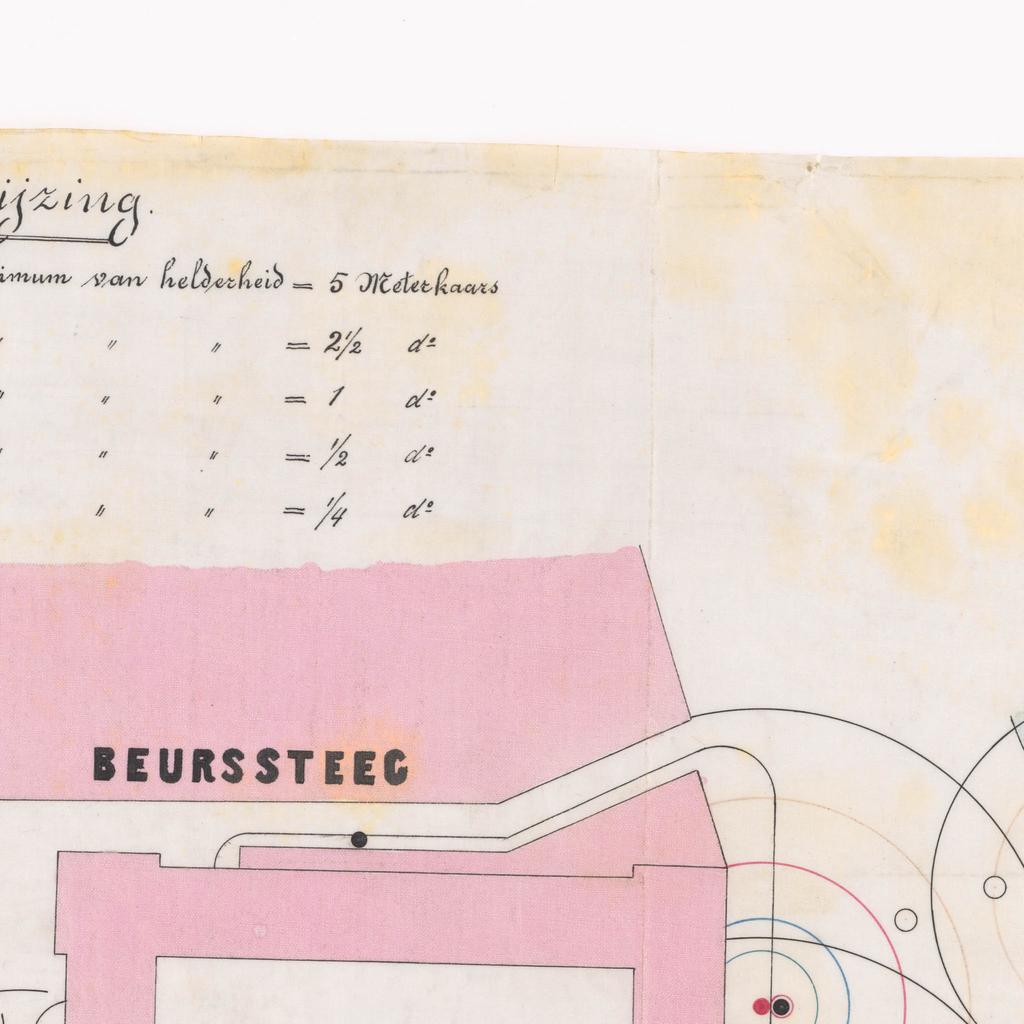 ijzing.
imum van helderheid = 5 Meterkaars
" " " = 2 1/2 dº
" " " = 1 dº
" " " = 1/2 dº
" " = 1/4 dº
BEURSSTEEG